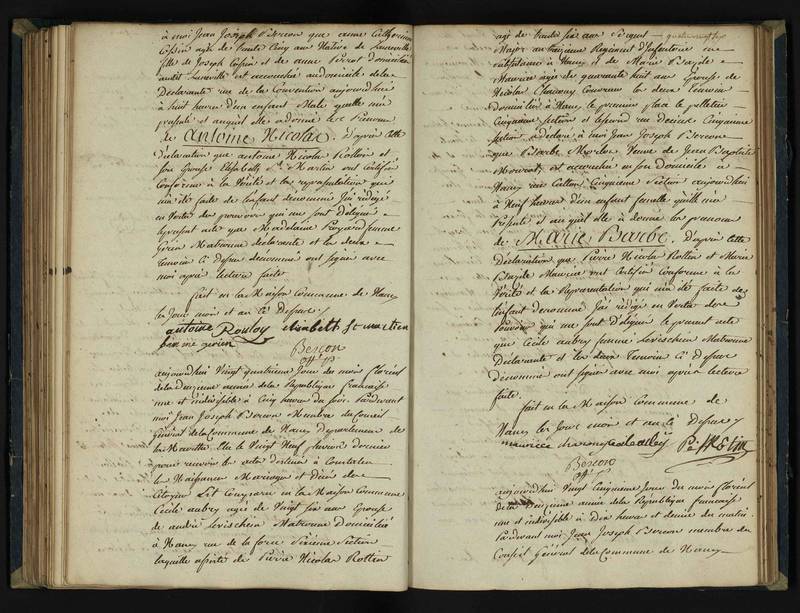 à moi Jean Joseph Bercon que anne Catherine
agée de trente Cinq ans Native de Luneville
fille de Joseph et de anne
audit Luneville est accouchée au domicile de la
Déclarante rue de la Convention aujourdhui
à huit heures d'un enfant Male quelle m'a
présenté et auquel elle a donné le prenom
de antoine Nicolas. D'après cette
déclaration que antoine Nicolas Rollin et
son Epouse Elisabeth St Martin ont certifié
Conforme à la Vérité et la représentation qui
m'a été faite de l'enfant denommé J'ai rédigé
en Vertu des pouvoirs qui me sont délégués
le présent acte que Madelaine femme
Matronne déclarante et les deux
temoins Ci Dessus denommés ont signés avec
moi après lecture faite
fait en la Maison Commune de Nancy
les Jour mois et an Ci Dessus.
antoine Elisabeth St martien
Bercon
off. P.
aujourdhui Vingt quatrieme Jour du mois floreal
de la Deuxieme année de la République française
une et indivisible à Cinq heures du soir. Pardevant
moi Jean Joseph Bercon Membre du Conseil
Général de la Commune de Nancy Departement de
la Meurthe Elu le Vingt Neuf pluviose dernier
pour recevoir les actes destinés à Constater
les Naissances Mariages et Décès des
Citoyens Est Comparue en la Maison Commune
Cecile aubry agée de Vingt six ans Epouse
de andré Matronne Domiciliée
à Nancy rue de la Sixieme Section
laquelle assistée de Pierre Nicolas Rottin
agé de trente six ans Sergent
Major au Regiment d'Infanterie en
à Nancy et de Marie Bazile
Maurice agée de quarante huit ans Epouse de
Nicolas les deux Temoins
Domiciliés à Nancy le premier place le pelletier
Cinquieme Section et la second rue Cinquieme
Section a déclaré à moi Jean Joseph Bercon
que Barbe Veuve de Jean Baptiste
est accouchée en son domicile à
Nancy rue Callot Cinquieme Section aujourdhui
à Neuf heures d'un enfant femelle quelle m'a
présenté et auquel elle a donné les prenoms
de Marie Barbe. D'après cette
Déclaration que Pierre Nicolas Rottin et Marie
Bazile Maurice ont Certifié Conforme à la
Vérité et la Représentation qui m'a été faite de
l'enfant denommé J'ai rédigé en Vertu des
pouvoirs qui me sont Délégués le présent acte
que Cecile aubry femme Matronne
Déclarante et les deux Temoins Ci Dessus
Dénommés ont signés avec moi après lecture
faite.
fait en la Maison Commune de
Nancy les Jour mois et an Ci Dessus
maurice
Bercon
off. P.
aujourdhui Vingt Cinquieme Jour du mois floreal
de la Deuxieme année de la République française
une et indivisible à Dix heures et demie du matin
Pardevant moi Jean Joseph Bercon membre du
Conseil Général de la Commune de Nancy